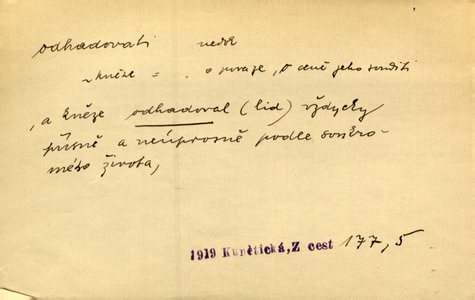 odhadovati nedok
~ kněze = . o povaze, o ceně jeho souditi
„a kněze odhadoval (lid) vždycky
přísně a neúprosně podle soukro-
mého života,
1919 Kunětická, Z cest 177, 5